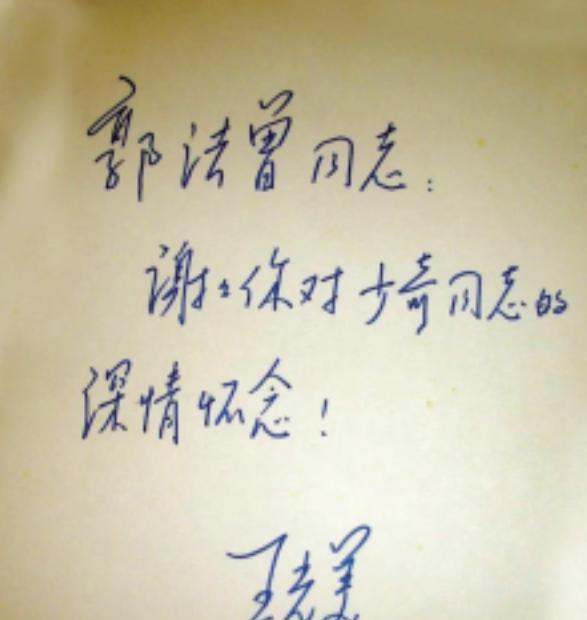 郭法曾同志:
谢谢你对少奇同志的
深情怀念!
王光美